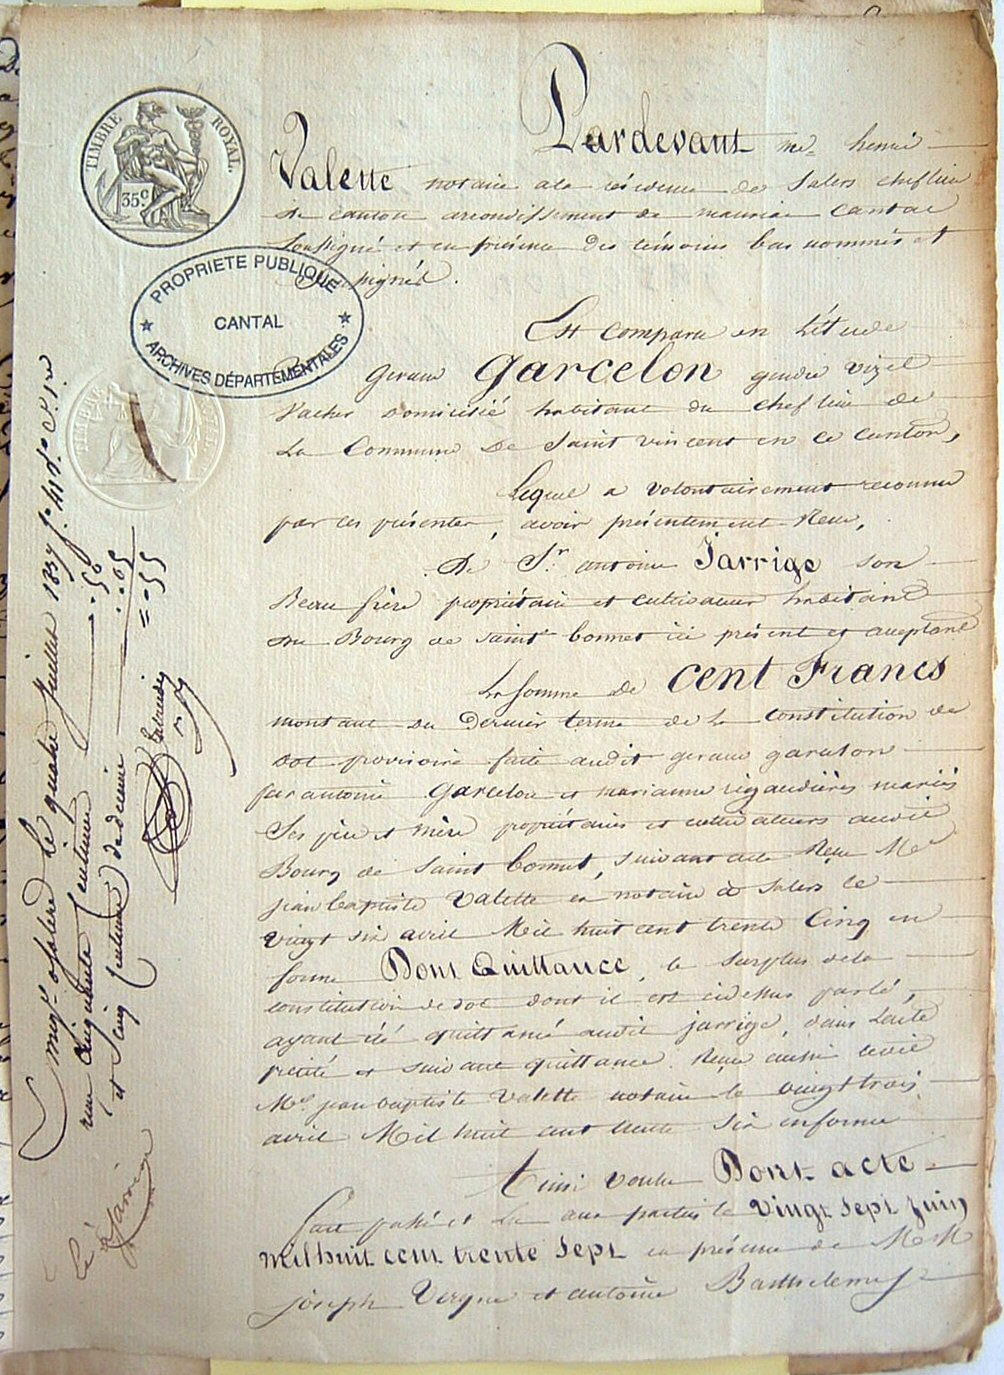 TIMBRE ROYAL.
35c
PROPRIETE PUBLIQUE
CANTAL
ARCHIVES DÉPARTEMENTALES
Pardevant me henri
Valette notaire a la résidence de Salers chef lieu
de canton arrondissement de mauriac cantal
soussigné et en présence des témoins bas nommés et
soussignés.
Est comparu en l'étude
Geraud Garcelon gendre vizel
vacher domicilié habitant du chef lieu de
la Commune de Saint vincent en ce canton,
Lequel a volontairement reconnu
par ces présentes, avoir présentement Reçu,
De Sr. antoine Jarrige son
Beau frère propriétaire et cultivateur habitant
du Bourg de saint bonnet ici présent et acceptant
La somme de cent Francs
montant du dernier terme de la constitution de
dot provisoire faite audit geraud garcelon
par antoine garcelon et marianne rigaudières mariés
ses père et mère propriétaires et cultivateurs audit
Bourg de saint bonnet, suivant acte Reçu Me
jean baptiste Valette en notaire à Salers le
vingt six avril Mil huit cent trente cinq en
forme Dont Quittance, le surplus de la
constitution de dot dont il est cidessus parlé,
ayant été quittancé audit jarrige, dans l'acte
précité et suivant quittance Reçue aussi ledit
Me. jean baptiste Valette notaire le vingt trois
avril Mil huit cent trente six en forme
Ainsi voulu Dont acte
Fait passé et lu aux parties le vingt sept juin
mil huit cent trente sept en présence de MM
joseph Vergne et antoine Barthelemy
Enregt. à Salers le quatre Juillet 1837 fo.
reçu cinquante centimes
et cinq centimes de décime
50
05
= 55
Jarrige